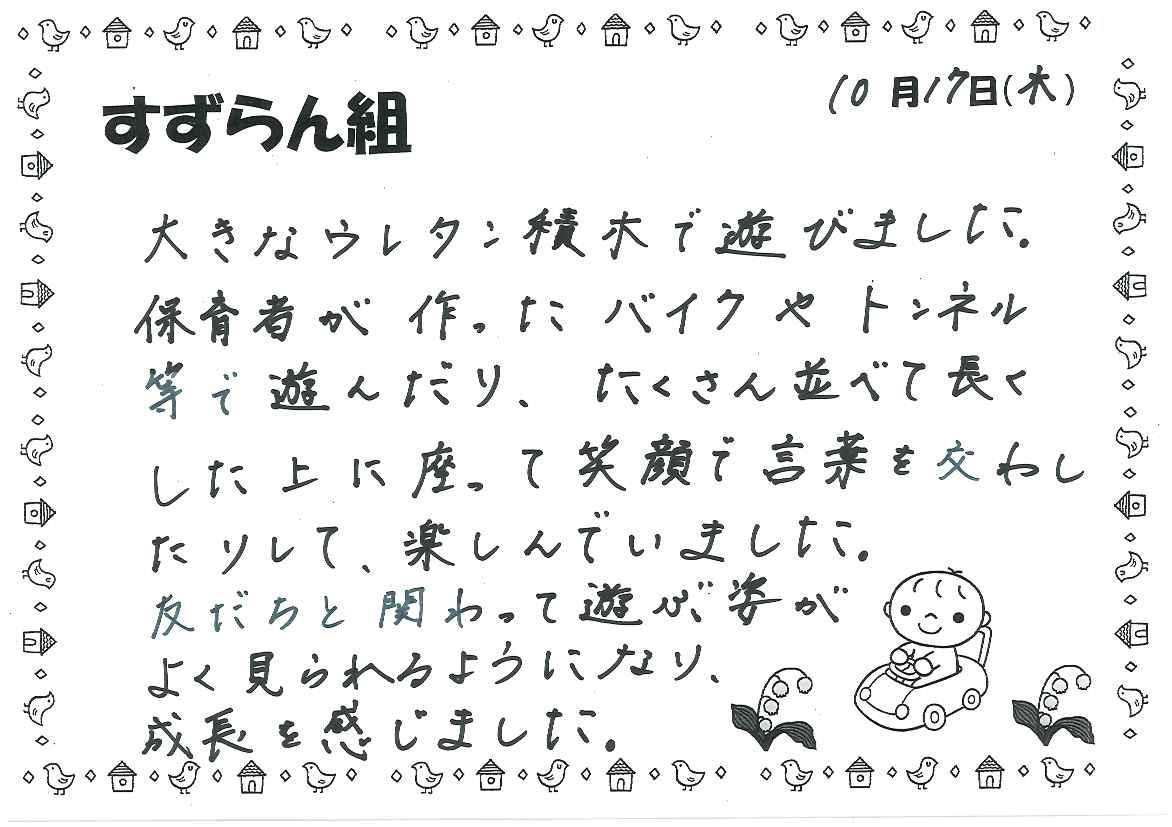 すずらん組
10月17日(木)
大きなウレタン積木で遊びました。
保育者が作ったバイクやトンネル
等で遊んだり、たくさん並べて長く
した上に座って笑顔で言葉を交わし
たりして、楽しんでいました。
友だちと関わって遊ぶ姿が
よく見られるようになり、
成長を感じました。